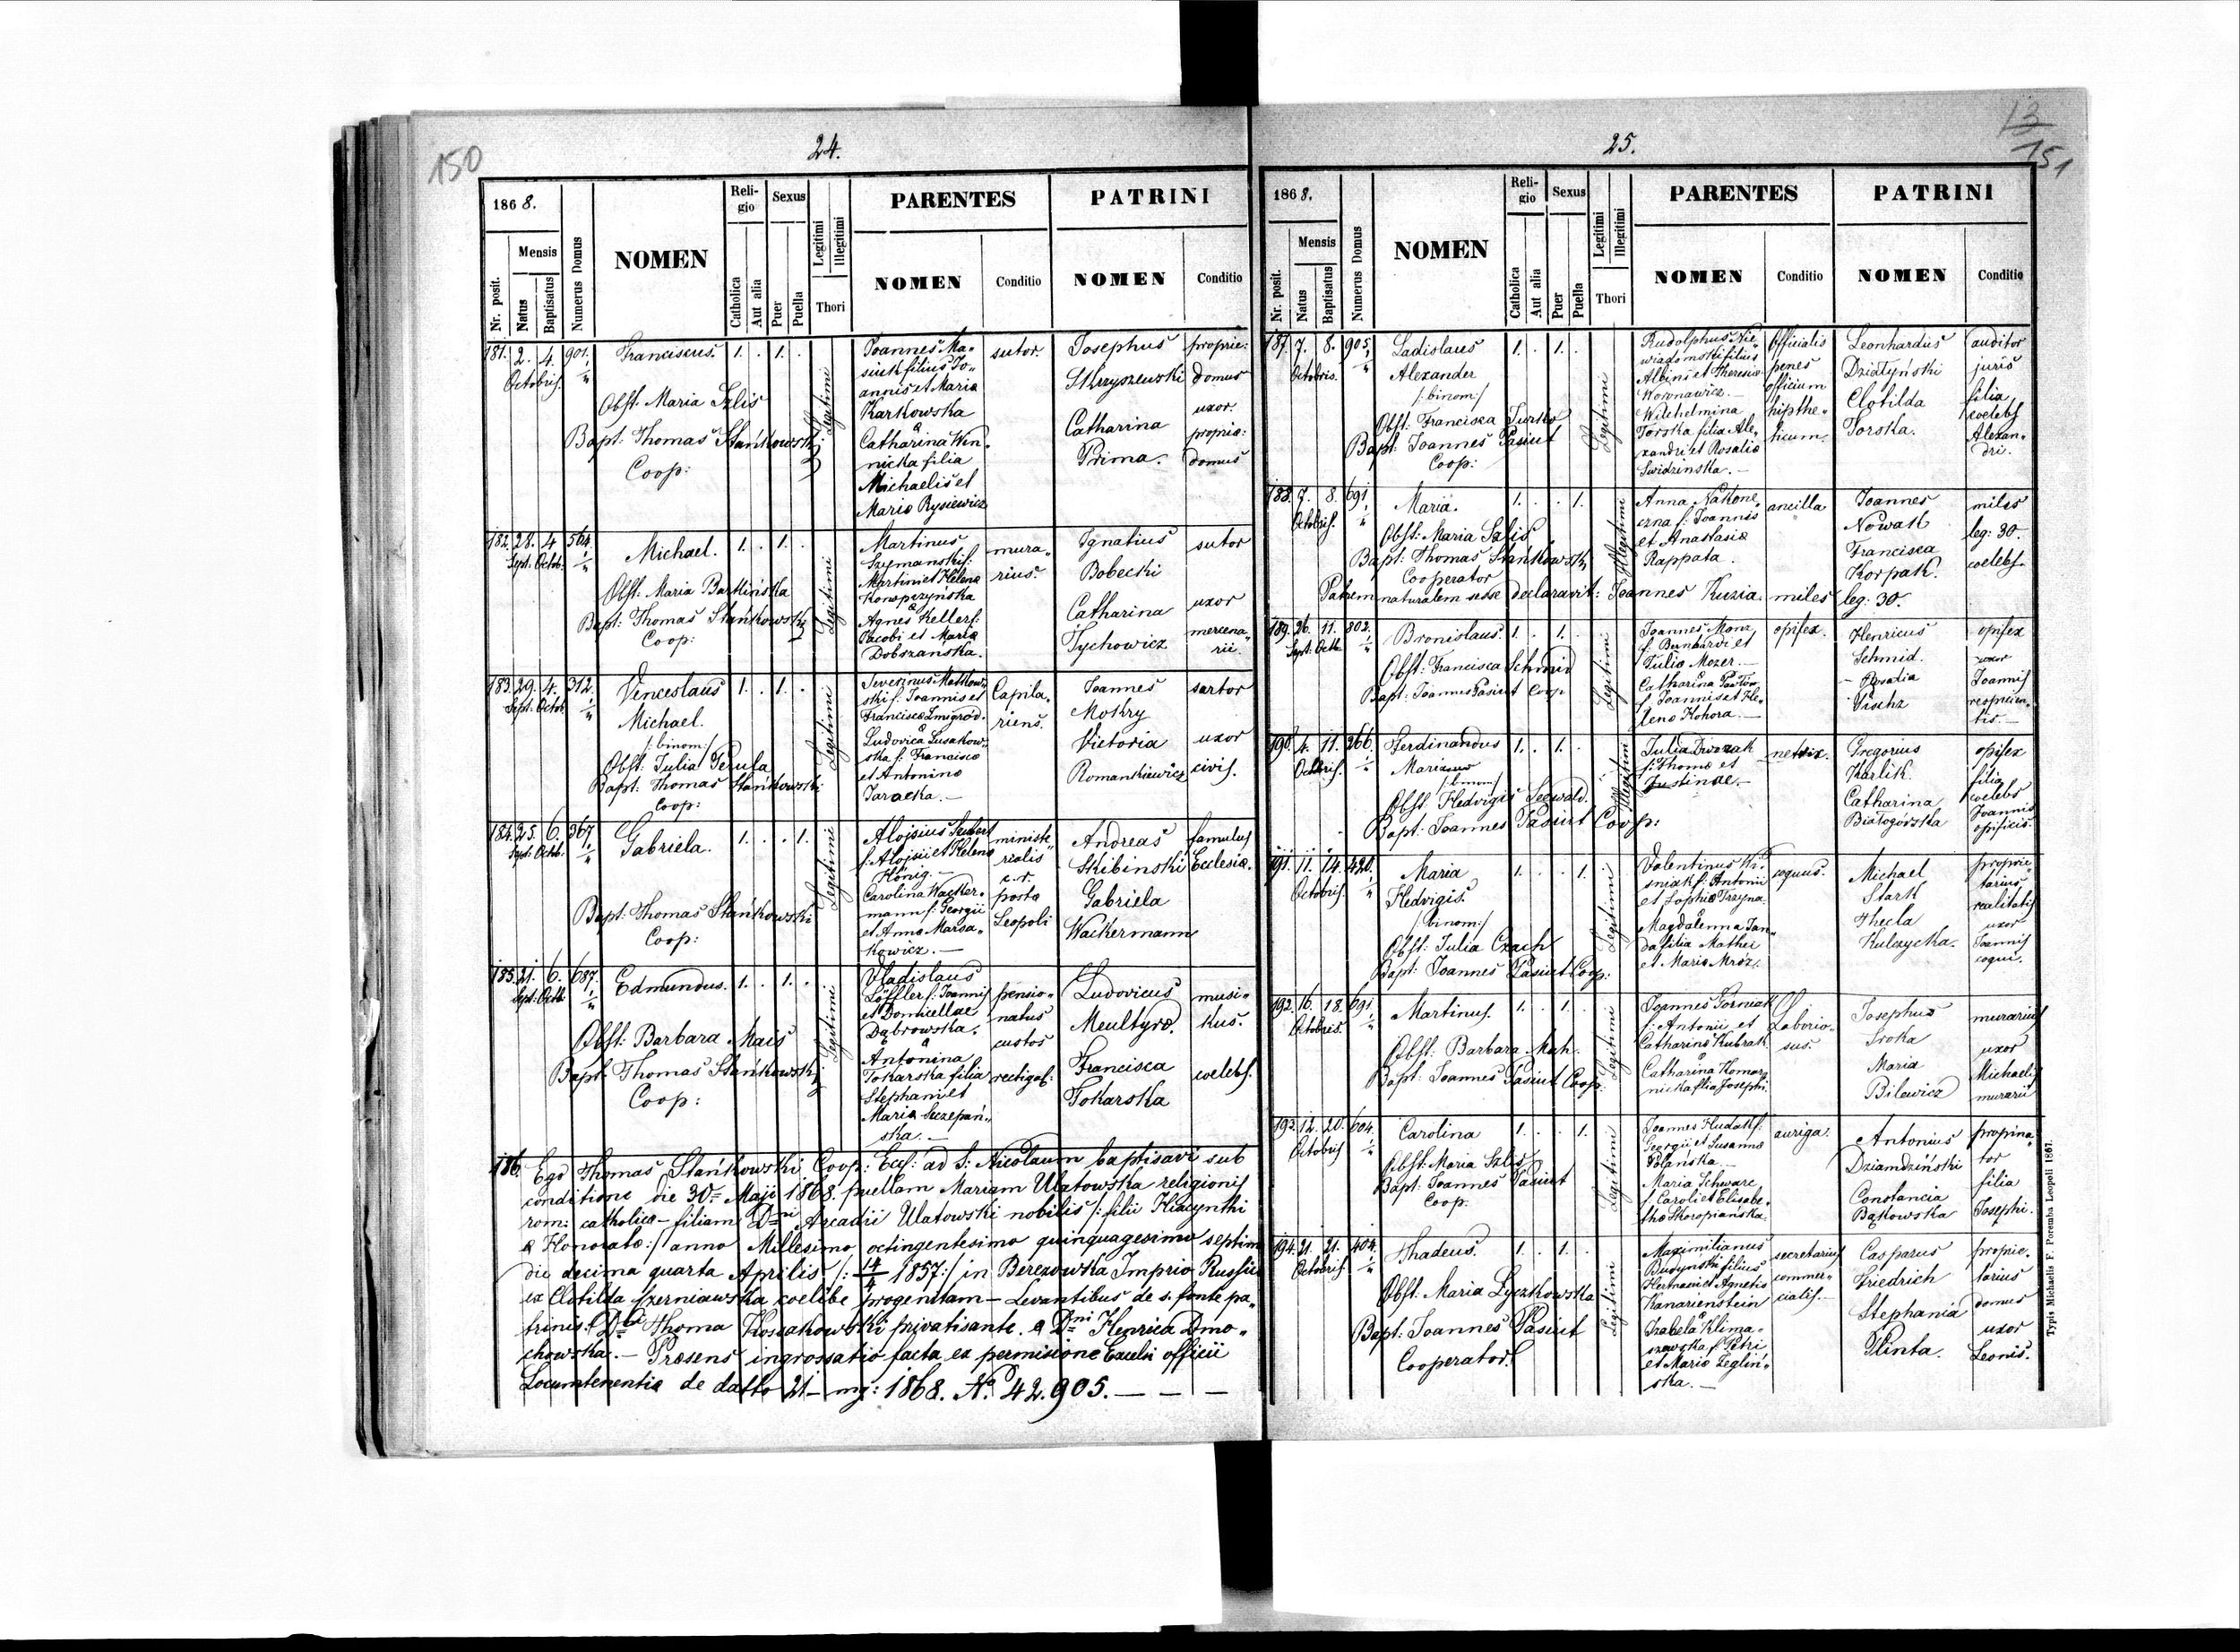 150
24.
1868.
Mensis
Nr. posit.
Natus
Baptisatus
Numerus Domus
NOMEN
Religio
Catholica
Aut alia
Sexus
Puer
Puella
Legitimi
Illegitimi
Thori
PARENTES
NOMEN
Conditio
PATRINI
NOMEN
Conditio
181. 2. 4. 901.
Octobris.
Franciscus. 1. . 1. .
Obst. Maria Szlis
Bapt: Thomas Stańkowski
Coop:
Legitimi
Joannes Ma-
siuk filius Jo-
annis et Maria
Karkowska
&
Catharina Win-
nicka filia
Michaelis et
Maria Rysiewicz
sutor.
Josephus
Skrzyszewski
Catharina
Prima.
proprie:
domus
uxor.
proprie:
domus
182. 28. 4 564.
Sept. Octob.
Michael. 1. . 1. .
Obst. Maria Bartlińska
Bapt: Thomas Stańkowski
Coop:
Legitimi
Martinus
Szymanski f:
Martini et Helena
Konopczyńska
&
Agnes Keller f:
Jacobi et Maria
Dobrzanska.
mura-
rius.
Ignatius
Bobecki
Catharina
Tychowicz
sutor
uxor
mercena-
rii.
183. 29. 4. 312.
Sept. Octob.
Venceslaus 1. . 1. .
Michael.
/: binom:/
Obst. Julia Perula
Bapt: Thomas Stańkowski
Coop:
Legitimi
ski f: Joannis et
Ludovica Lusakow-
ska f: Francisca
et Antonina
Taracka.—
Capila-
riens.
Joannes
Mokry
Victoria
Romankiewicz
sartor
uxor
civis.
184. 25. 6. 367.
Sept. Octob.
Gabriela. 1. . . 1.
Bapt: Thomas Stańkowski
Coop:
Legitimi
Alojsius Seubert
f: Alojsii et Helena
König.—
Carolina Wacker-
mann f: Georgii
et Anna Marsa-
kowicz.—
ministe-
rialis
c. r.
posta
Leopoli
Andreas
Skibinski
Gabriela
Wackermann
famulus
Ecclesiæ.
185. 21. 6. 687.
Sept: Octb:
Edmundus. 1. . 1. .
Obst: Barbara Mais
Bapt: Thomas Stańkowski
Coop:
Legitimi
Vladislaus
Löffler f: Joannis
et Domicellae
Dąbrowska.
&
Antonina
Tokarska filia
Stephani et
Maria Szczepań-
ska.—
pensio-
natus
custos
vectigal:
Ludovicus
Meultyrd.
Francisca
Tokarska
musi-
kus.
coelebs.
186. Ego Thomas Stańkowski Coop: Eccl: ad S: Nicolaum baptisavi sub
conditione die 30= Maji 1868. puellam Mariam Ulatowska religionis
rom: catholica — filiam Dni Arcadii Ulatowski nobilis /: filii Hiacynthi
& Honorata:/ anno Millesimo octingentesimo quinquagesimo septimo
die decima quarta Aprilis /: 14/4 1857:/ in Berezowka Imprio Russiæ
ex Clotilda Czerniawska coelebe progenitam — Levantibus de s. fonte pa-
trinis: Thoma Kossakowski privatisante & Henrica Dmo-
chowska.— Præsens ingrossatio facta ex permissione Excelsi officii
Locumtenentiæ de datto 21— m: 1868. No. 42.905. — — —
13
151
25.
1868.
Mensis
Nr. posit.
Natus
Baptisatus
Numerus Domus
NOMEN
Religio
Catholica
Aut alia
Sexus
Puer
Puella
Legitimi
Illegitimi
Thori
PARENTES
NOMEN
Conditio
PATRINI
NOMEN
Conditio
187. 7. 8. 905.
Octobris.
Ladislaus 1. . 1. .
Alexander
/: binom:/
Obst: Francisca Turko
Bapt: Joannes Pasiut
Coop:
Legitimi
Rudolphus Nie-
wiadomski filius
Albini et Theresia
Woronawicz.
Wilhelmina
Torska filia Ale-
xandri et Rosalia
Swidzinska.—
Officialis
penes
officium
hipthe-
licum.
Leonhardus
Działyński
Clotilda
Torska.
auditor
juris
filia
coelebs
Alexan-
dri.
188. 7. 8. 691.
Octobris.
Maria. 1. . . 1.
Obst: Maria Szlis
Bapt: Thomas Stańkowski
Cooperator
Illegitimi
Anna Nakone-
czna f: Joannis
et Anastasia
Rappata.
ancilla
Joannes
Nowak
Francisca
Korpak.
miles
leg: 30.
coelebs.
Patrem naturalem sesse declaravit: Joannes Kuzia. miles leg: 30.
189. 26. 11. 802.
Sept: Octb.
Bronislaus. 1. . 1. .
Obst: Francisca Schmid
Bapt: Joannes Pasiut Coop
Legitimi
Joannes Monz
f: Bernardi et
Julia Mozer.—
Catharina
f: Joannis et He-
lena Kohora.—
opifex.
Henricus
Schmid.
— Rosalia
Vischz
opifex
uxor
Joannis
190. 4. 11. 266.
Octobris.
Ferdinandus 1. . 1. .
Marianus
/: binom:/
Obst. Hedvigis Seewald.
Bapt: Joannes Pasiut Coop:
Illegitimi
Julia Dworzak
f: Thoma et
Justinae.—
netrix.
Gregorius
Karlik.
Catharina
Białogórska
opifex
filia
coelebs
Joannis
opificis.
191. 11. 14. 420.
Octobris.
Maria 1. . . 1.
Hedvigis.
/: binom:/
Obst: Julia Czach
Bapt: Joannes Pasiut Coop:
Legitimi
Valentinus Wi-
sniak f: Antonii
et Sophia Trzyna.
&
Magdalenna Jan-
da filia Mathei
et Maria Mróz.
coquus.
Michael
Stark
Thecla
Kulczycka.
proprie-
tarius
realitatis
uxor
Joannis
coqui.
192. 16. 18. 691.
Octobris.
Martinus. 1. . 1. .
Obst: Barbara Mah.
Bapt: Joannes Pasiut Coop:
Legitimi
Joannes Forniak
f: Antonii et
Catharina Kubrak.
&
Catharina Komar-
nicka filia Josephi.
Laborio-
sus.
Josephus
Sroka
Maria
Bilewicz
murarius
uxor
Michaelis
murarii
193. 12. 20. 604.
Octobris
Carolina 1. . . 1.
Obst: Maria Szlis
Bapt: Joannes Pasiut
Coop:
Legitimi
Joannes Hudak f:
Georgii et Susanna
Polańska.—
Maria Schwarc
f: Caroli et Elisabe-
tha Skoropiańska.
auriga.
Antonius
Dziamdziński
Constancia
Bąkowska
propina-
tor
filia
Josephi.
194. 21. 21. 404.
Octobris
Thadeus. 1. . 1. .
Obst: Maria Łyczkowska
Bapt: Joannes Pasiut
Cooperator.
Legitimi
Maximilianus
Budynski filius
Hermani et Agnetis
Kanarienstein
&
Izabela Klima-
szewska f: Petri
et Maria Zeglin-
ska.—
secretarius
commer-
cialis.—
Casparus
Friedrich
Stephania
Plinta.
proprie-
tarius
domus
uxor
Leonis.
Typis Michaelis F. Poremba Leopoli 1867.